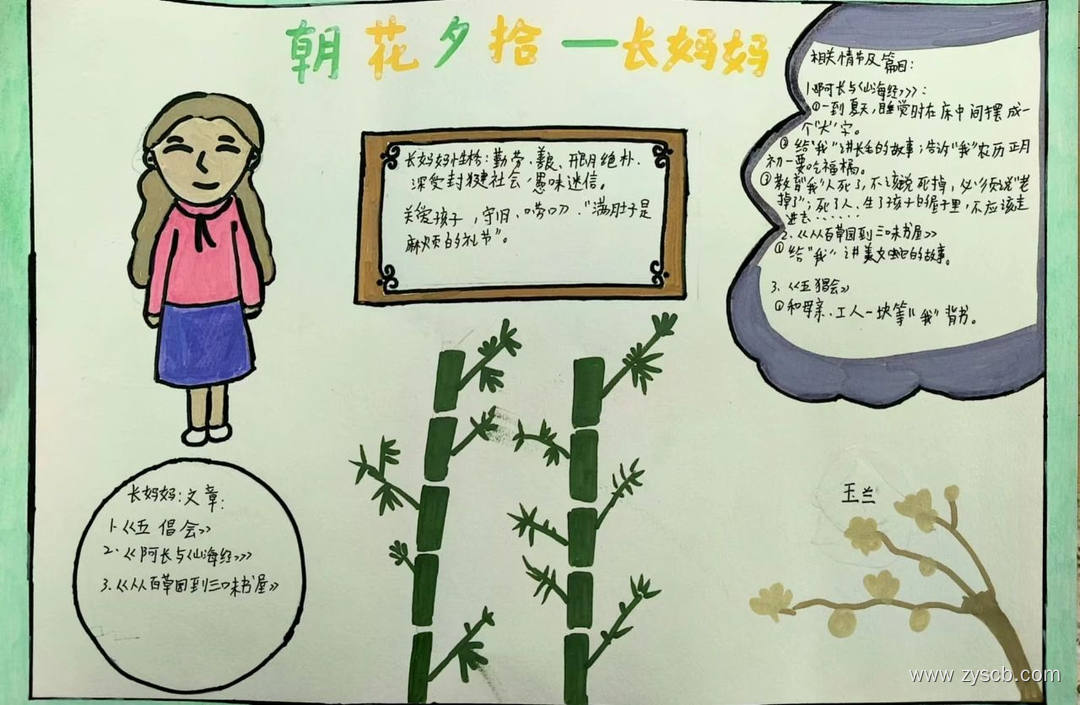 朝花夕拾—长妈妈
长妈妈性格：勤劳、善良、朴
深受封建社会愚昧迷信。
关爱孩子，守旧、唠叨."满肚子是
麻烦的礼节"。
相关情节及篇目：
1.《阿长与《山海经》》：
①一到夏天，睡觉时在床中间摆成一
个"大"字。
②给"我"讲长毛的故事；告诉"我"农历正月
初一要吃福橘。
③教育"我"人死了，不该说死掉，必须说"老
掉了"；死了人、生了孩子的屋子里，不应该走
进去……
2.《从百草园到三味书屋》
①给"我"讲美女蛇的故事。
3.《五猖会》
①和母亲、工人一块等"我"背书。
长妈妈：文章：
1.《五倡会》
2.《阿长与《山海经》》
3.《从百草园到三味书屋》
玉兰
www.zyscb.com